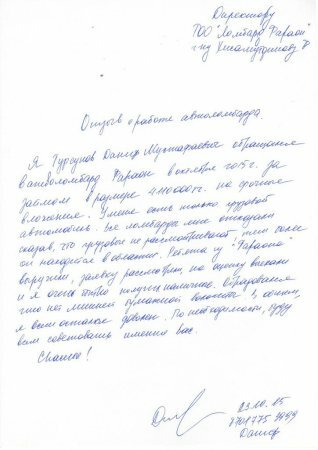 Директору
ТОО "Ломбард Фараон"
г-ну
Отзыв о работе автоломбарда.
Я Турсунов Данир Мустафаевич обращался
в автоломбард Фараон в октябре 2015г. за
займом в размере 4.110000тг. на срочные
вложения. У меня есть только грузовой
автомобиль. Все ломбарды мне отказали
сказав, что грузовые не рассматривают тем более
он находится в области. Ребята из "Фараона"
выручили, заявку рассмотрели, на оценку выехали
и я очень быстро получил наличные. Обрадовался
что нет лишней бумажной волокиты! В общем,
я всем остался доволен. По необходимости, буду
всем советовать именно вас.
Спасибо!
23.10.15
8701 775 9999
Данир